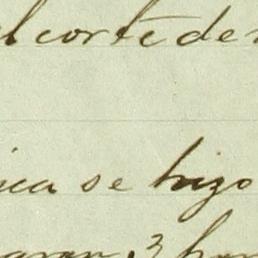 el corte de
ica se hizo
garon 3 hom